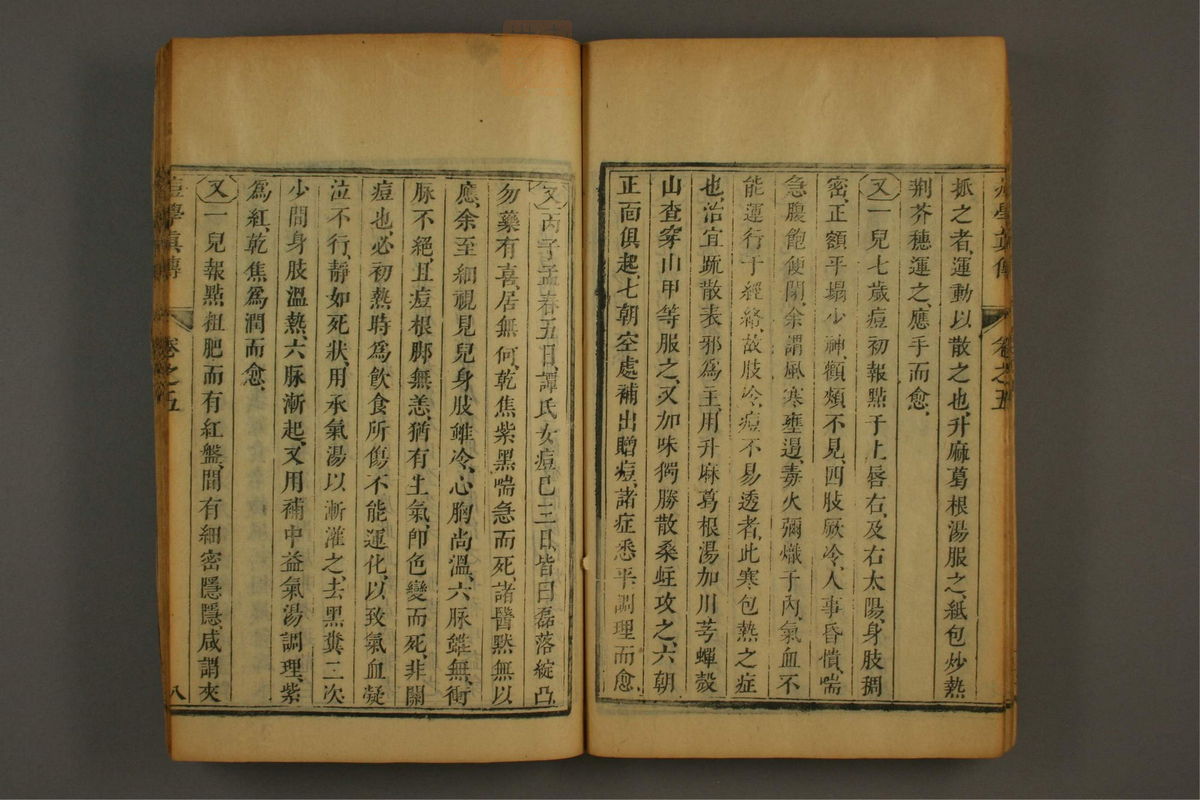 抓之者運動以散之也升麻葛根湯服之紙包炒熱
荆芥穗運之應手而愈
又一兒七歲痘初報點于上唇右及右太陽身肢稠
密正額平塌少神顴頰不見四肢厥冷人事昏憒喘
急腹飽便閉余謂風寒壅遏毒火彌熾于內氣血不
能運行于經絡故肢冷痘不易透者此寒包熱之症
也治宜疏散表邪爲主用升麻葛根湯加川芎蟬殼
山查穿山甲等服之又加味獨勝散桑蛀攻之六朝
正面俱起七朝空處補出贈痘諸症悉平調理而愈
又丙子孟春五日譚氏女痘已三日皆曰磊落綻凸
勿藥有喜居無何乾焦紫黑喘急而死諸醫黙無以
應余至細視見兒身肢雖冷心胸尚溫六脉雖無衝
脉不絕且痘根脚無恙猶有生氣卽色變而死非關
痘也必初熱時爲飲食所傷不能運化以致氣血凝
泣不行靜如死狀用承氣湯以漸灌之去黑糞三次
少間身肢溫熱六脉漸起又用補中益氣湯調理紫
爲紅乾焦爲潤而愈
又一兒報點粗肥而有紅盤間有細密隱隱咸謂夾
痘學眞傳 卷之五 八